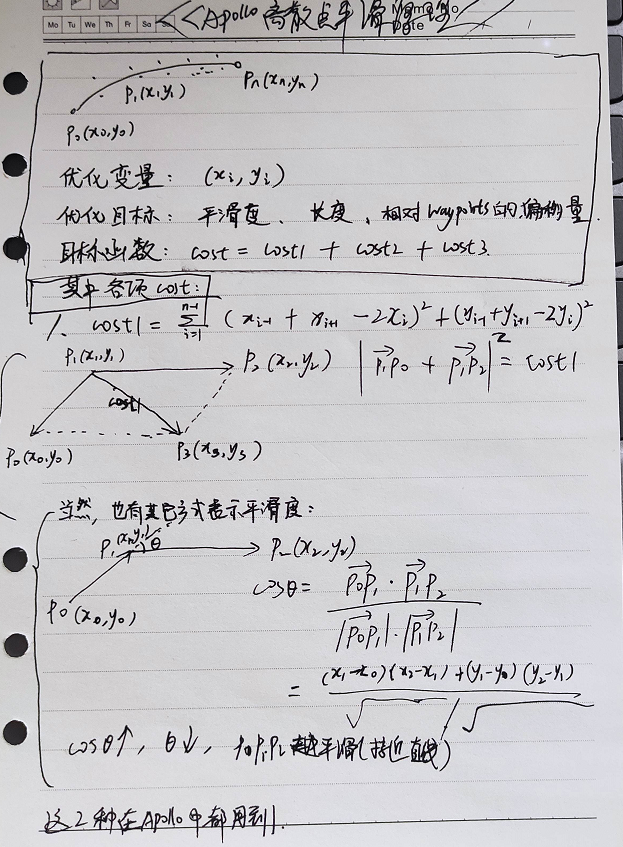 Mo Tu We Th Fr Sa
Memo No
Date / /
<<Apollo 离散点平滑原理>>
P₁(x₁,y₁)
Pn(xn,yn)
P₀(x₀,y₀)
优化变量: (xᵢ, yᵢ)
优化目标: 平滑度、长度、相对waypoints的偏移量.
目标函数: cost = cost1 + cost2 + cost3.
其中各项cost:
1. cost1 = Σᵢ₌₁ⁿ⁻¹ (xᵢ₋₁ + xᵢ₊₁ - 2xᵢ)² + (yᵢ₋₁ + yᵢ₊₁ - 2yᵢ)²
P₁(x₁,y₁) P₂(x₂,y₂) |P₁P₀ + P₁P₂|² = cost1
cost1
P₀(x₀,y₀) P₃(x₃,y₃)
当然, 也有其它方式表示平滑度:
P₁(x₁,y₁) θ P₂(x₂,y₂)
P₀(x₀,y₀)
cosθ = P₀P₁ · P₁P₂ / |P₀P₁| · |P₁P₂|
= (x₁-x₀)(x₂-x₁) + (y₁-y₀)(y₂-y₁) / √ √
cosθ↑, θ↓, P₀P₁P₂ 越平滑(接近直线)
这2种在Apollo中都用到.